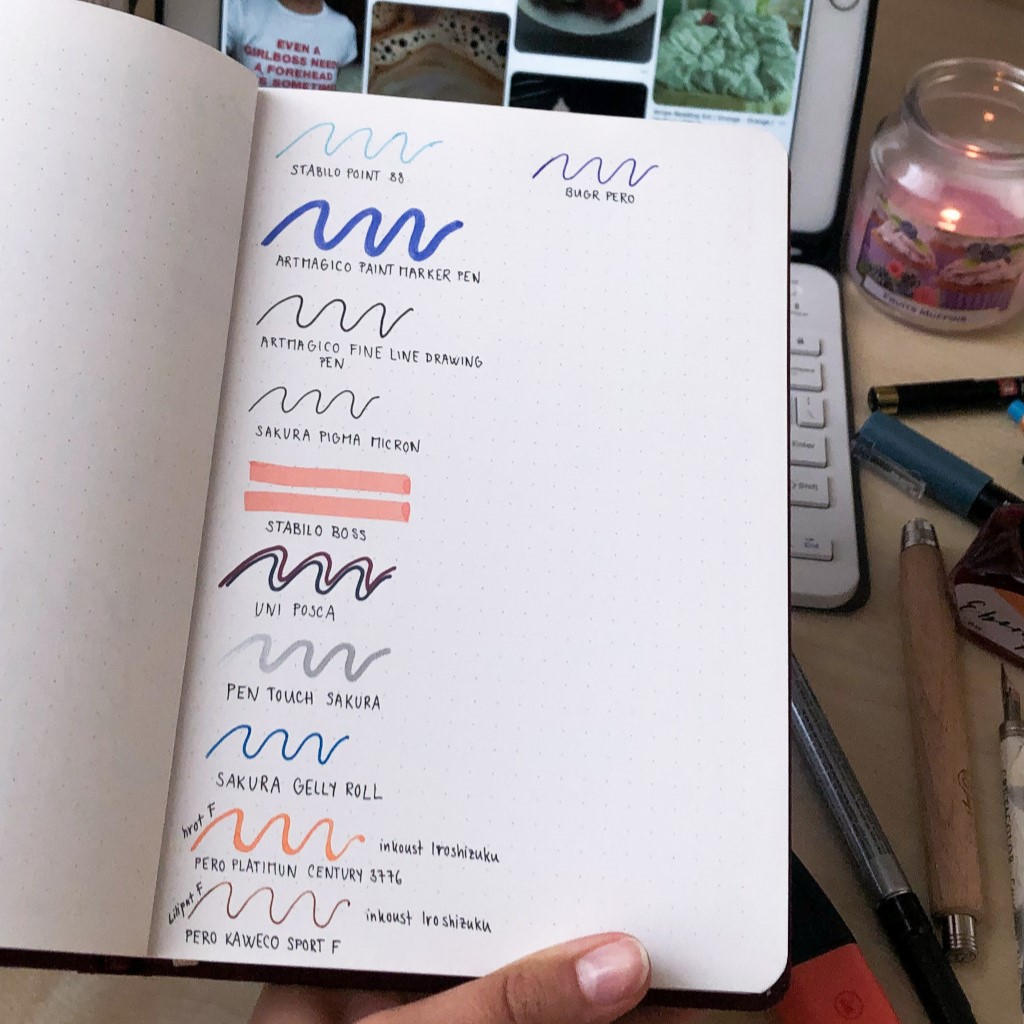 EVEN A
GIRLBOSS NEED
A FOREHEAD
STABILO POINT 88
BUGR PERO
ARTMAGICO PAINT MARKER PEN
ARTMAGICO FINE LINE DRAWING
PEN
SAKURA PIGMA MICRON
STABILO BOSS
UNI POSCA
PEN TOUCH SAKURA
SAKURA GELLY ROLL
hrot F
inkoust Iroshizuku
PERO PLATIMUN CENTURY 3776
Liliput F
inkoust Iroshizuku
PERO KAWECO SPORT F
FRUITS MUFFINS
Enter
Shift
End